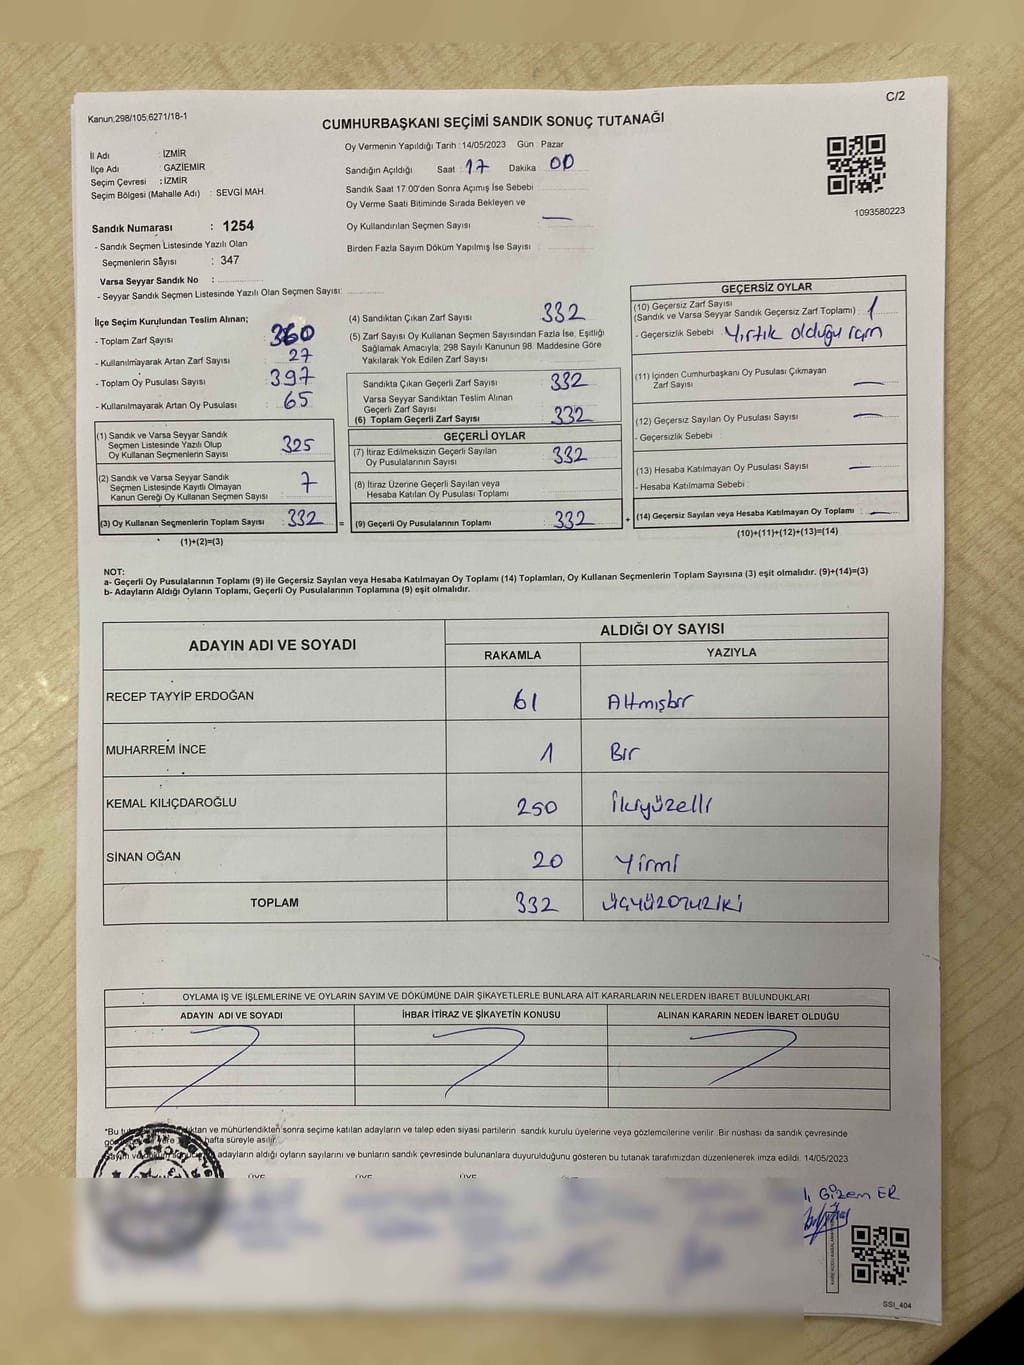 C/2
Kanun:298/105;6271/18-1
CUMHURBAŞKANI SEÇİMİ SANDIK SONUÇ TUTANAĞI
İl Adı : İZMİR
İlçe Adı : GAZİEMİR
Seçim Çevresi : İZMİR
Seçim Bölgesi (Mahalle Adı) : SEVGİ MAH.
Oy Vermenin Yapıldığı Tarih : 14/05/2023 Gün : Pazar
Sandığın Açıldığı Saat 17 Dakika 00
Sandık Saat 17.00'den Sonra Açımış İse Sebebi
Oy Verme Saati Bitiminde Sırada Bekleyen ve
Oy Kullandırılan Seçmen Sayısı —
Birden Fazla Sayım Döküm Yapılmış İse Sayısı
1093580223
Sandık Numarası : 1254
- Sandık Seçmen Listesinde Yazılı Olan
Seçmenlerin Sayısı : 347
Varsa Seyyar Sandık No :
- Seyyar Sandık Seçmen Listesinde Yazılı Olan Seçmen Sayısı:
İlçe Seçim Kurulundan Teslim Alınan;
- Toplam Zarf Sayısı : 360
- Kullanılmayarak Artan Zarf Sayısı : 27
- Toplam Oy Pusulası Sayısı : 397
- Kullanılmayarak Artan Oy Pusulası : 65
(1) Sandık ve Varsa Seyyar Sandık
Seçmen Listesinde Yazılı Olup
Oy Kullanan Seçmenlerin Sayısı : 325
(2) Sandık ve Varsa Seyyar Sandık
Seçmen Listesinde Kayıtlı Olmayan
Kanun Gereği Oy Kullanan Seçmen Sayısı : 7
(3) Oy Kullanan Seçmenlerin Toplam Sayısı : 332
(1)+(2)=(3)
(4) Sandıktan Çıkan Zarf Sayısı : 332
(5) Zarf Sayısı Oy Kullanan Seçmen Sayısından Fazla İse, Eşitliği
Sağlamak Amacıyla, 298 Sayılı Kanunun 98. Maddesine Göre
Yakılarak Yok Edilen Zarf Sayısı :
Sandıkta Çıkan Geçerli Zarf Sayısı : 332
Varsa Seyyar Sandıktan Teslim Alınan
Geçerli Zarf Sayısı
(6) Toplam Geçerli Zarf Sayısı : 332
GEÇERLİ OYLAR
(7) İtiraz Edilmeksizin Geçerli Sayılan
Oy Pusulalarının Sayısı : 332
(8) İtiraz Üzerine Geçerli Sayılan veya
Hesaba Katılan Oy Pusulası Toplamı :
= (9) Geçerli Oy Pusulalarının Toplamı : 332
GEÇERSİZ OYLAR
(10) Geçersiz Zarf Sayısı
(Sandık ve Varsa Seyyar Sandık Geçersiz Zarf Toplamı) : 1
- Geçersizlik Sebebi : Yırtık olduğu için
(11) İçinden Cumhurbaşkanı Oy Pusulası Çıkmayan
Zarf Sayısı —
(12) Geçersiz Sayılan Oy Pusulası Sayısı : —
- Geçersizlik Sebebi :
(13) Hesaba Katılmayan Oy Pusulası Sayısı : —
- Hesaba Katılmama Sebebi :
+ (14) Geçersiz Sayılan veya Hesaba Katılmayan Oy Toplamı : —
(10)+(11)+(12)+(13)=(14)
NOT:
a- Geçerli Oy Pusulalarının Toplamı (9) ile Geçersiz Sayılan veya Hesaba Katılmayan Oy Toplamı (14) Toplamları, Oy Kullanan Seçmenlerin Toplam Sayısına (3) eşit olmalıdır. (9)+(14)=(3)
b- Adayların Aldığı Oyların Toplamı, Geçerli Oy Pusulalarının Toplamına (9) eşit olmalıdır.
ADAYIN ADI VE SOYADI
ALDIĞI OY SAYISI
RAKAMLA YAZIYLA
RECEP TAYYİP ERDOĞAN 61 Altmışbir
MUHARREM İNCE 1 Bir
KEMAL KILIÇDAROĞLU 250 İkiyüzelli
SİNAN OĞAN 20 Yirmi
TOPLAM 332 üçyüzotuziki
OYLAMA İŞ VE İŞLEMLERİNE VE OYLARIN SAYIM VE DÖKÜMÜNE DAİR ŞİKAYETLERLE BUNLARA AİT KARARLARIN NELERDEN İBARET BULUNDUKLARI
ADAYIN ADI VE SOYADI İHBAR İTİRAZ VE ŞİKAYETİN KONUSU ALINAN KARARIN NEDEN İBARET OLDUĞU
*Bu ve mühürlendikten sonra seçime katılan adayların ve talep eden siyasi partilerin sandık kurulu üyelerine veya gözlemcilerine verilir .Bir nüshası da sandık çevresinde
hafta süreyle asılır.
adayların aldığı oyların sayılarını ve bunların sandık çevresinde bulunanlara duyurulduğunu gösteren bu tutanak tarafımızdan düzenlenerek imza edildi. 14/05/2023
ÜYE ÜYE ÜYE
Gizem ER
SSI_404